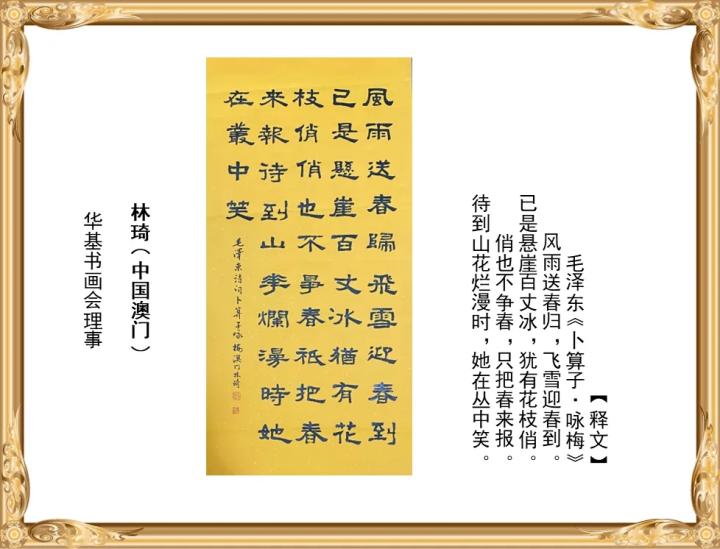 【释文】
毛泽东《卜算子·咏梅》
风雨送春归，飞雪迎春到。
已是悬崖百丈冰，犹有花枝俏。
俏也不争春，只把春来报。
待到山花烂漫时，她在丛中笑。
風雨送春歸飛雪迎春到
已是懸崖百丈冰猶有花
枝俏俏也不爭春祗把春
來報待到山華爛漫時她
在叢中笑
毛澤東詩詞卜算子咏梅澳门林琦
林琦（中国澳门）
华基书画会理事